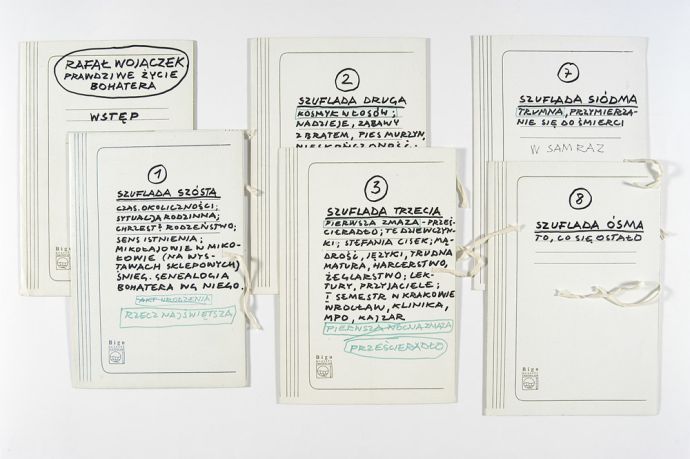 RAFAŁ WOJACZEK
PRAWDZIWE ŻYCIE
BOHATERA
WSTĘP
2
SZUFLADA DRUGA
KOSMYK WŁOSÓW;
NADZIEJE, ZABAWY
Z BRATEM, PIES MURZYN,
NIESKOŃCZONOŚĆ,
7
SZUFLADA SIÓDMA
TRUMNA, PRZYMIERZA-
NIE SIĘ DO ŚMIERCI
W SAM RAZ
1
SZUFLADA SZÓSTA
CZAS. OKOLICZNOŚCI;
SYTUACJA RODZINNA;
CHRZEST? RODZEŃSTWO;
SENS ISTNIENIA;
MIKOŁAJOWIE W MIKO-
ŁOWIE (NA WYS-
TAWACH SKLEPOWYCH)
ŚNIEG. GENEALOGIA
BOHATERA WG NIEGO.
AKT URODZENIA
RZECZ NAJŚWIĘTSZA
Bigo
3
SZUFLADA TRZECIA
PIERWSZA ZMAZA - PRZEŚ-
CIERADŁO; TE DZIEWCZYN-
KI; STEFANIA CISEK; MĄ-
DROŚĆ, JĘZYKI, TRUDNA
MATURA, HARCERSTWO,
ŻEGLARSTWO; LEK-
TURY, PRZYJACIELE;
I SEMESTR W KRAKOWIE
WROCŁAW, KLINIKA,
MPO, KAJZAR
PIERWSZA NOCNA ZMAZA
PRZEŚCIERADŁO
Bigo
8
SZUFLADA ÓSMA
TO, CO SIĘ OSTAŁO
Bigo